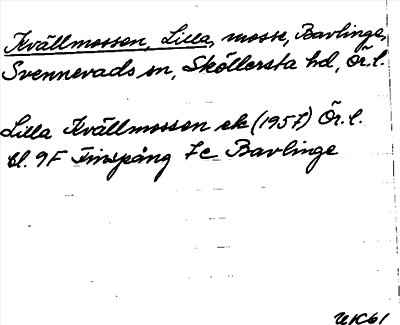 Kvällmossen, Lilla, mosse, Bavlinge,
Svennevads sn, Sköllersta hd, Ör.l.
Lilla Kvällmossen ek (1957) Ör.l.
bl. 9F Finspång 7c Bavlinge
UK61